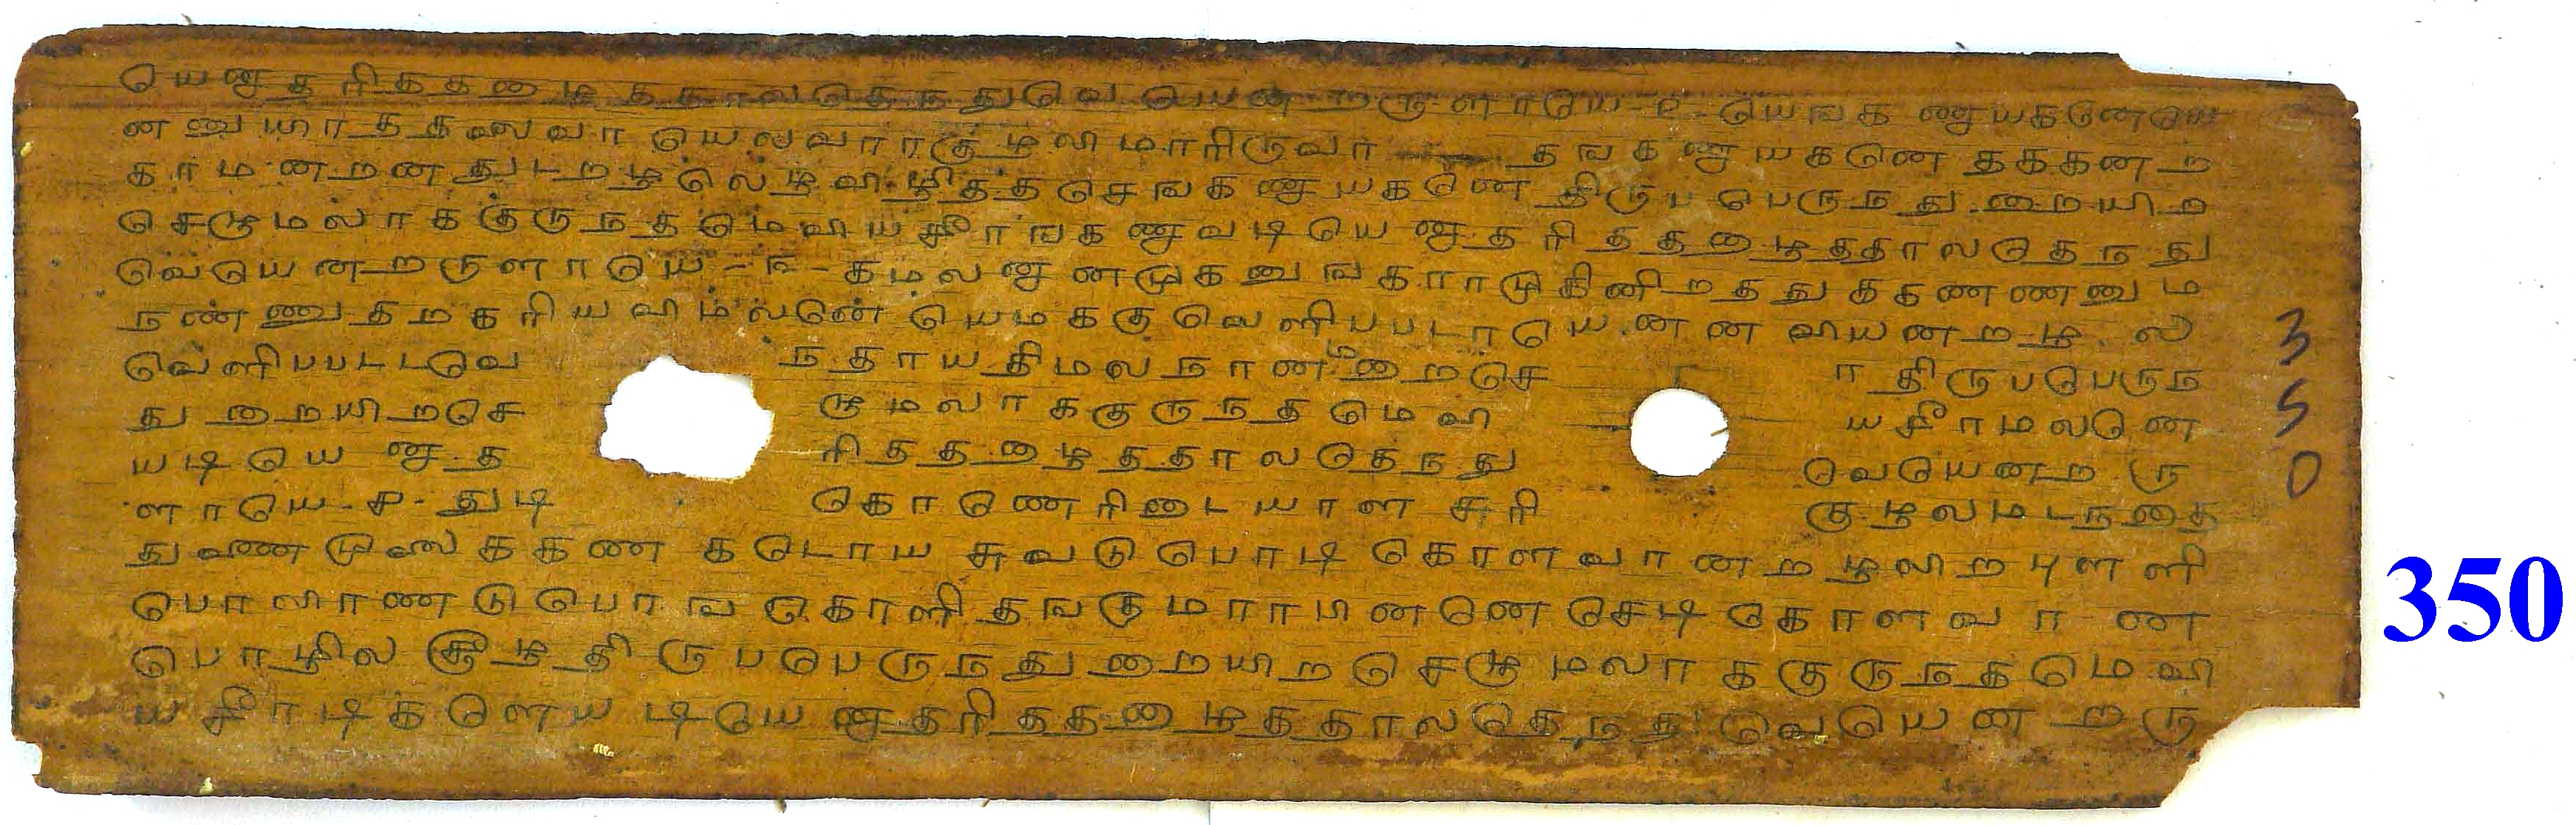 யெனாதரிககழைககாலதெநதுவெயெனறருளாயெ-உ-யெஙகணாயகனெயெ
னனுயிரததலைவா யெலவாரகுழலிமாரிருவர தஙகணாயகனெ தககனற
காமனறனதுடறழலெழவிழிததசெஙகணாயகனெ திருபபெருநதுறையிற
செழுமலரககுருநதமெவியசீரஙகணாவடியெனாதரிததழைததாலதெநது
வெயெனறருளாயெ-௩-கமலனானமுகனுஙகாரமுகினிறததுககணணனும
நணணுதறகரியவிமலனெ யெமககுவெளிபபடாயெனன வியனறழல
வெளிபபடடவெ நதாயதிமலநானமறைசெ ர திருபபெருந
துறையிறசெ ழுமலரககுருநதமெவி யசீரமலனெ
யடியெனாத ரிததழைததாலதெநது வெயெனறரு
ளாயெ-௪-துடி கொணெரிடையாள சுரி குழலமடநதை
துணைமுலைககண கடொய சுவடுபொடிகொளவானறழலிறபுளளி
பொலிரணடுபொஙகொளிதஙகுமாரபினனெ செடிகொளவான
பொழிலசூழதிருபபெருநதுறையிறசெழுமலரககுருநதமெவி
யசீரடிகளெயடியெனாதரிததழைததாலதெநதுவெயெனறரு
350
350